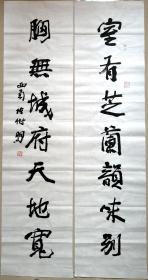 室有芝蘭韻味別
胸無城府天地寬